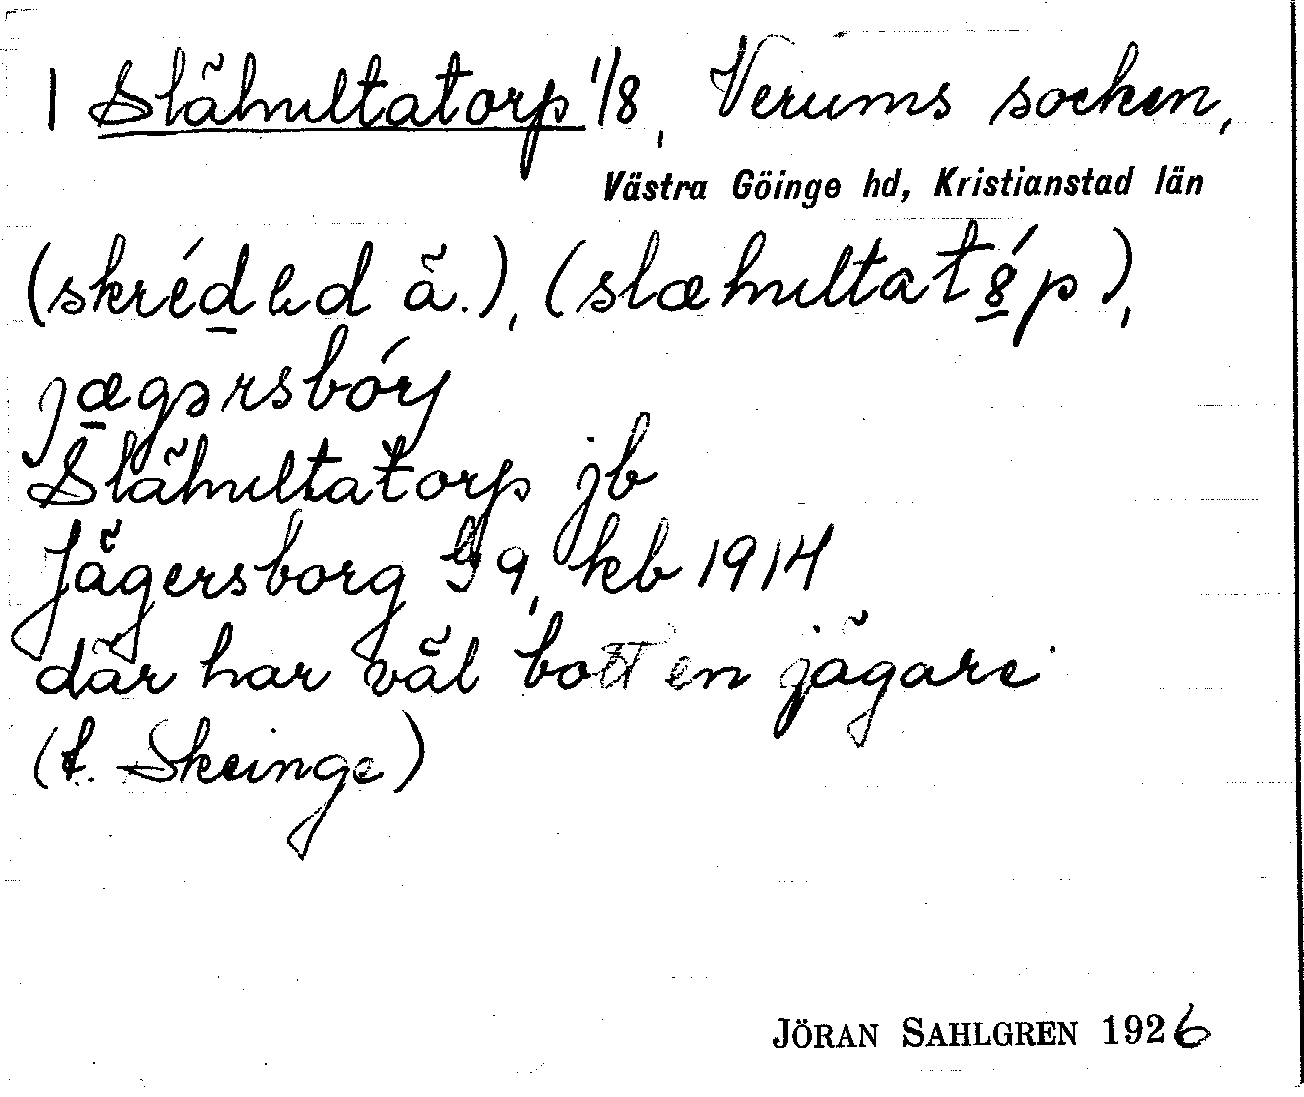 1 Slähultatorp 1/8, Verums socken,
Västra Göinge hd, Kristianstad län
(skréd d ä.), (slæhultatǿp),
jægərsbórj
Slähultatorp jb
Jägersborg 9, kb 1914
där har väl bott en jägare
(t. Skeinge)
JÖRAN SAHLGREN 1926